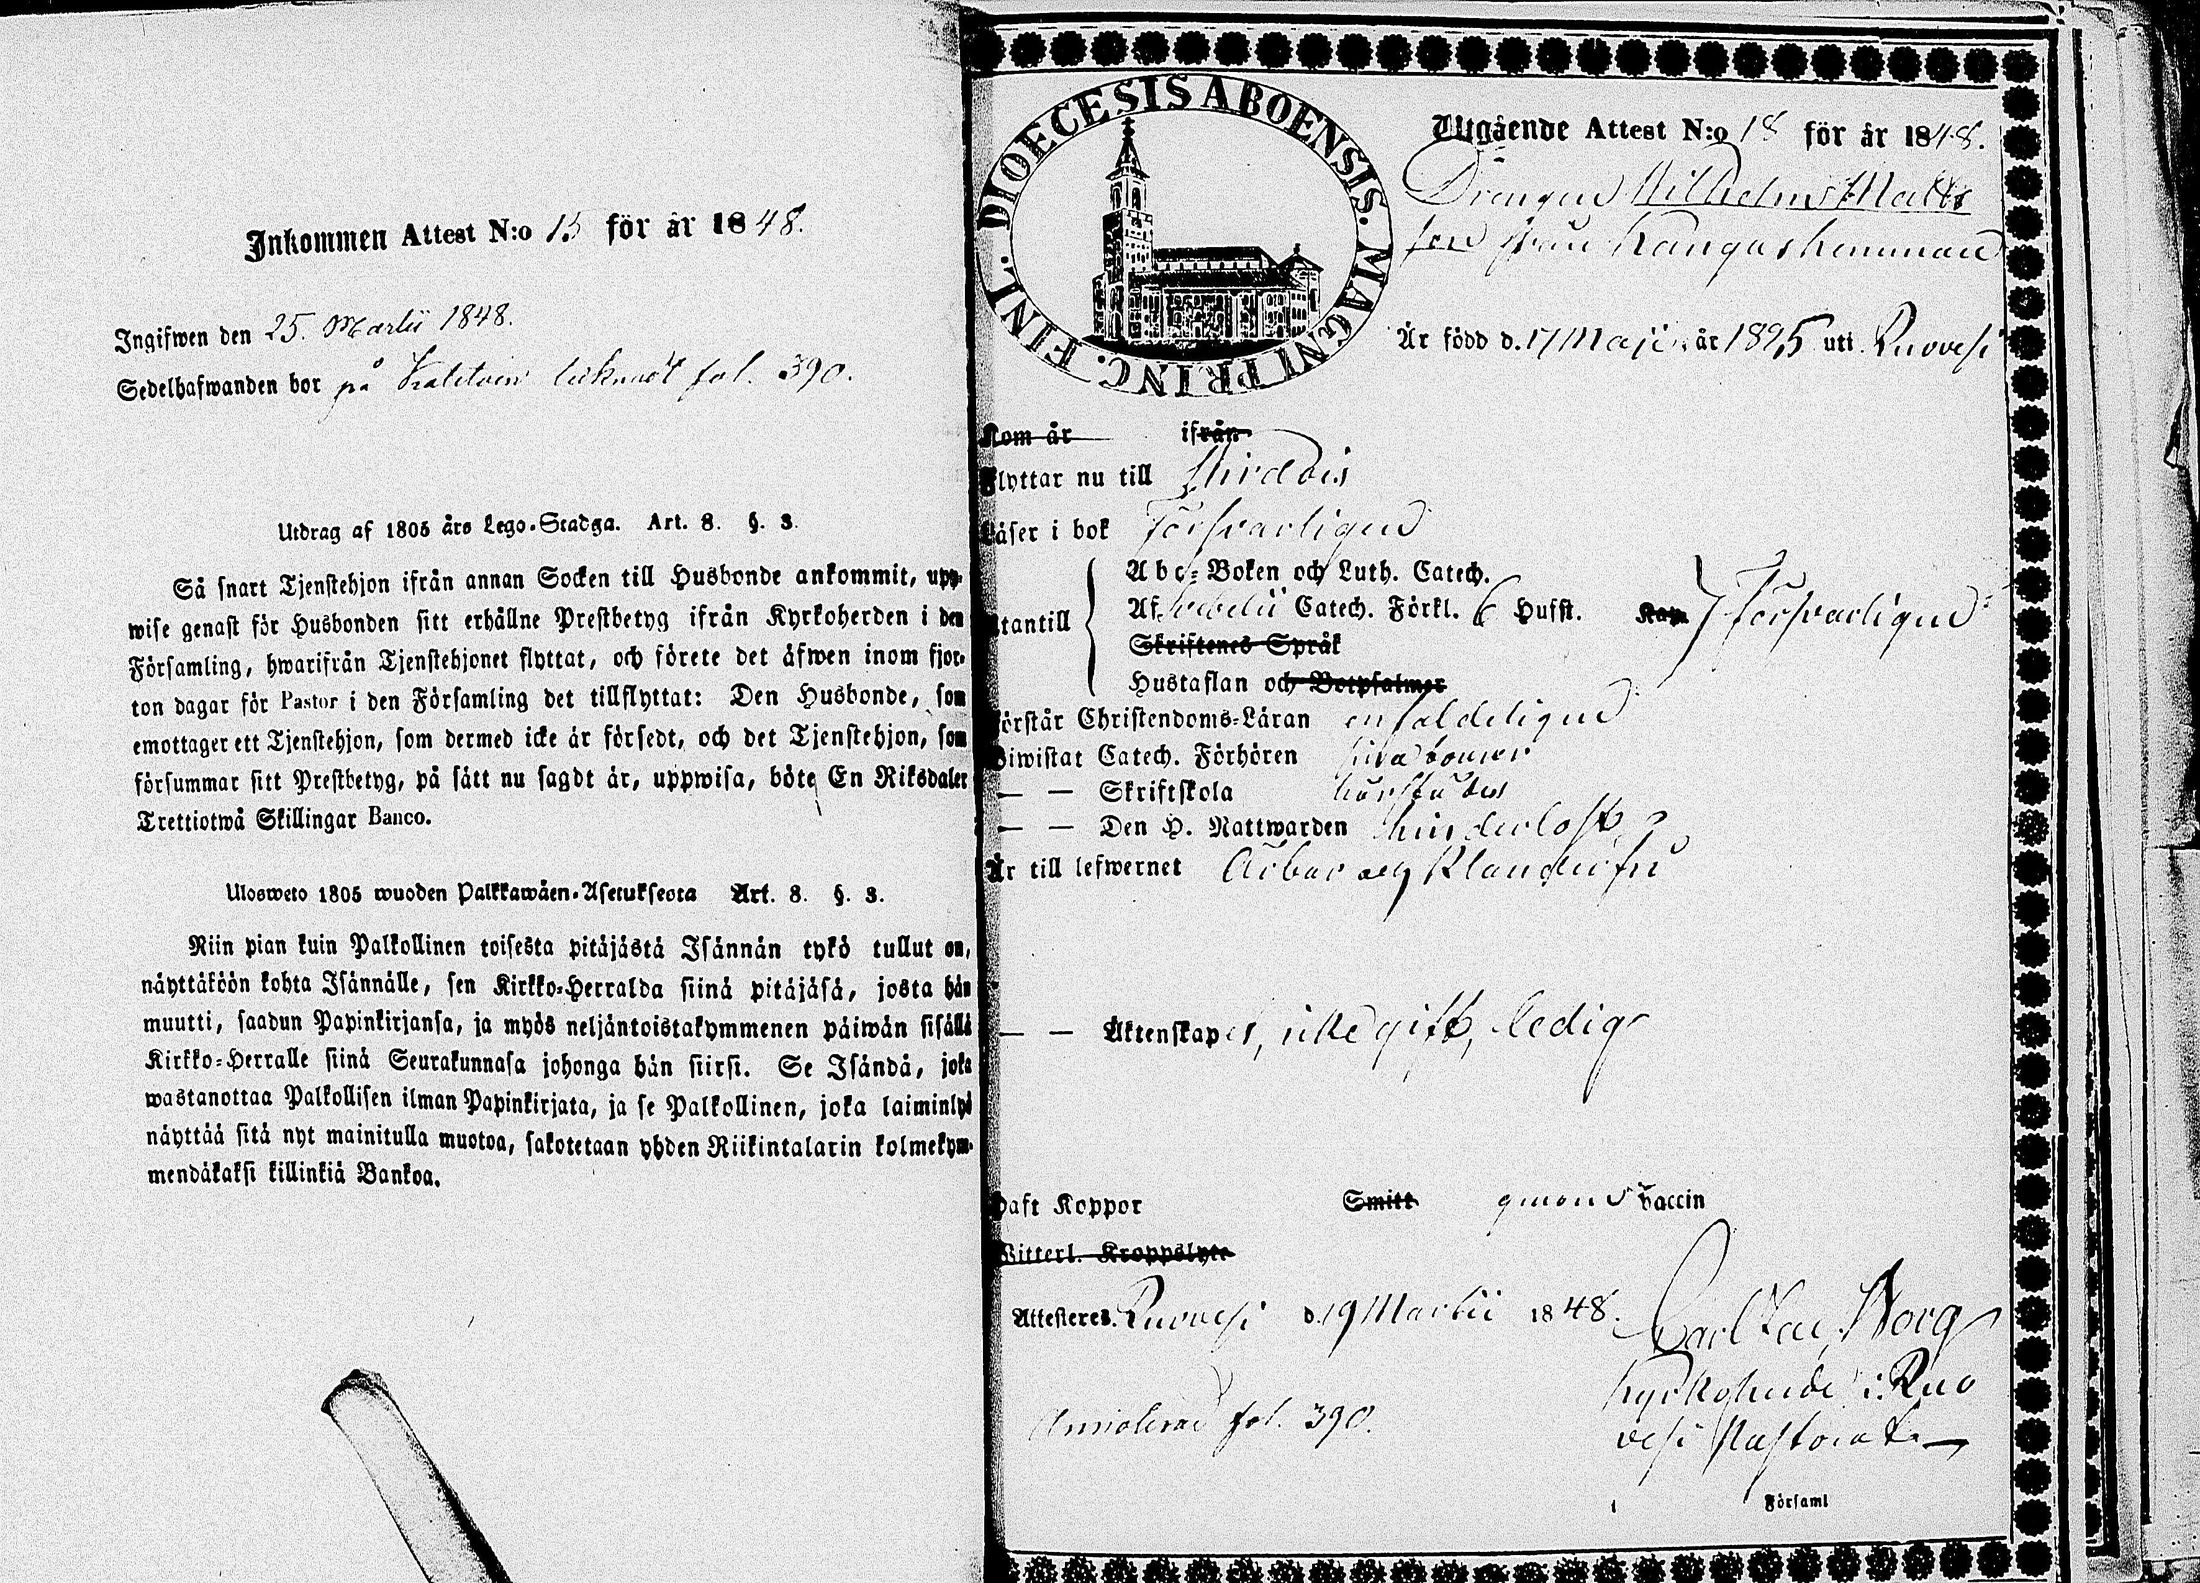 Inkommen Attest N:o 15 för år 1848.
Ingifwen den 25. Martii 1848.
Sedelhafwanden bor på fol. 390.
Utdrag af 1805 års Lego-Stadga. Art. 8. §. 3.
Så snart Tjenstehjon ifrån annan Socken till Husbonde ankommit, upp-
wise genast för Husbonden sitt erhållne Prestbetyg ifrån Kyrkoherden i den
Församling, hwarifrån Tjenstehjonet flyttat, och förete det äfwen inom fjor-
ton dagar för Pastor i den Församling det tillflyttat: Den Husbonde, som
emottager ett Tjenstehjon, som dermed icke är försedt, och det Tjenstehjon, som
försummar sitt Prestbetyg, på sätt nu sagdt är, uppwisa, böte En Riksdaler
Trettiotwå Skillingar Banco.
Ulosweto 1805 wuoden Palkkawäen-Asetuksesta Art. 8. §. 3.
Niin pian kuin Palkollinen toisesta pitäjästä Isännän tykö tullut on,
näyttäköön kohta Isännälle, sen Kirkko-Herralda siinä pitäjäsä, josta hän
muutti, saadun Papinkirjansa, ja myös neljäntoistakymmenen päiwän sisällä
Kirkko-Herralle siinä Seurakunnasa johonga hän siirsi. Se Isändä, joka
wastanottaa Palkollisen ilman Papinkirjata, ja se Palkollinen, joka laiminlyö
näyttää sitä nyt mainitulla muotoa, sakotetaan yhden Riikintalarin kolmekym-
mendäkaksi killinkiä Bankoa.
DIOECESIS ABOENSIS. MAGNI PRINC. FINL.
Utgående Attest N:o 18 för år 1848.
Drängen Wilhelm Matts
son från Kangas hemman
Är född d. 17 Maji år 1825 uti Ruovesi
Kom år ifrån
Flyttar nu till Virdois
Läser i bok Försvarligen
Abc-Boken och Luth. Catech.
Utantill Af Svebelii Catech. Förkl. 6 Hufst. Kap. Försvarligen
Skriftenes Språk
Hustaflan och Botpsalmer
Förstår Christendoms-Läran enfaldeligen
Biwistat Catech. Förhören
— — Skriftskola
— — Den H. Nattwarden hinderlöst
Är till lefwernet Ärbar och Klanderfri
— — Äktenskapet, icke gift, ledig
Haft Koppor Smitt genom Vaccin
Witterl. Kroppslyte
Attesteres. Ruovesi d. 19 Martii 1848.
Carl Borg
Kyrkoherde i Ruo
vesi Pastorat
Annoterad fol. 390.
Församl